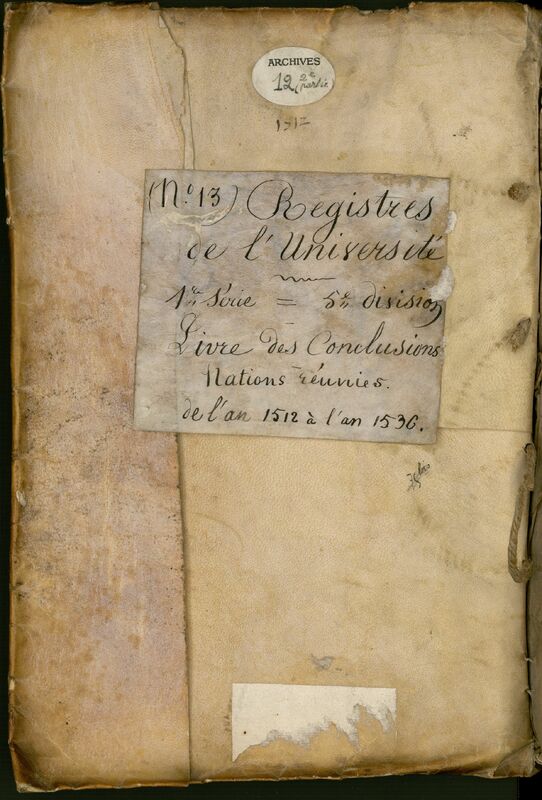 ARCHIVES
12 (2e partie)
1512
(No. 13) Registres
de l'Université
1re Série = 5e division
Livre des Conclusions
Nations réunies.
de l'an 1512 à l'an 1536.